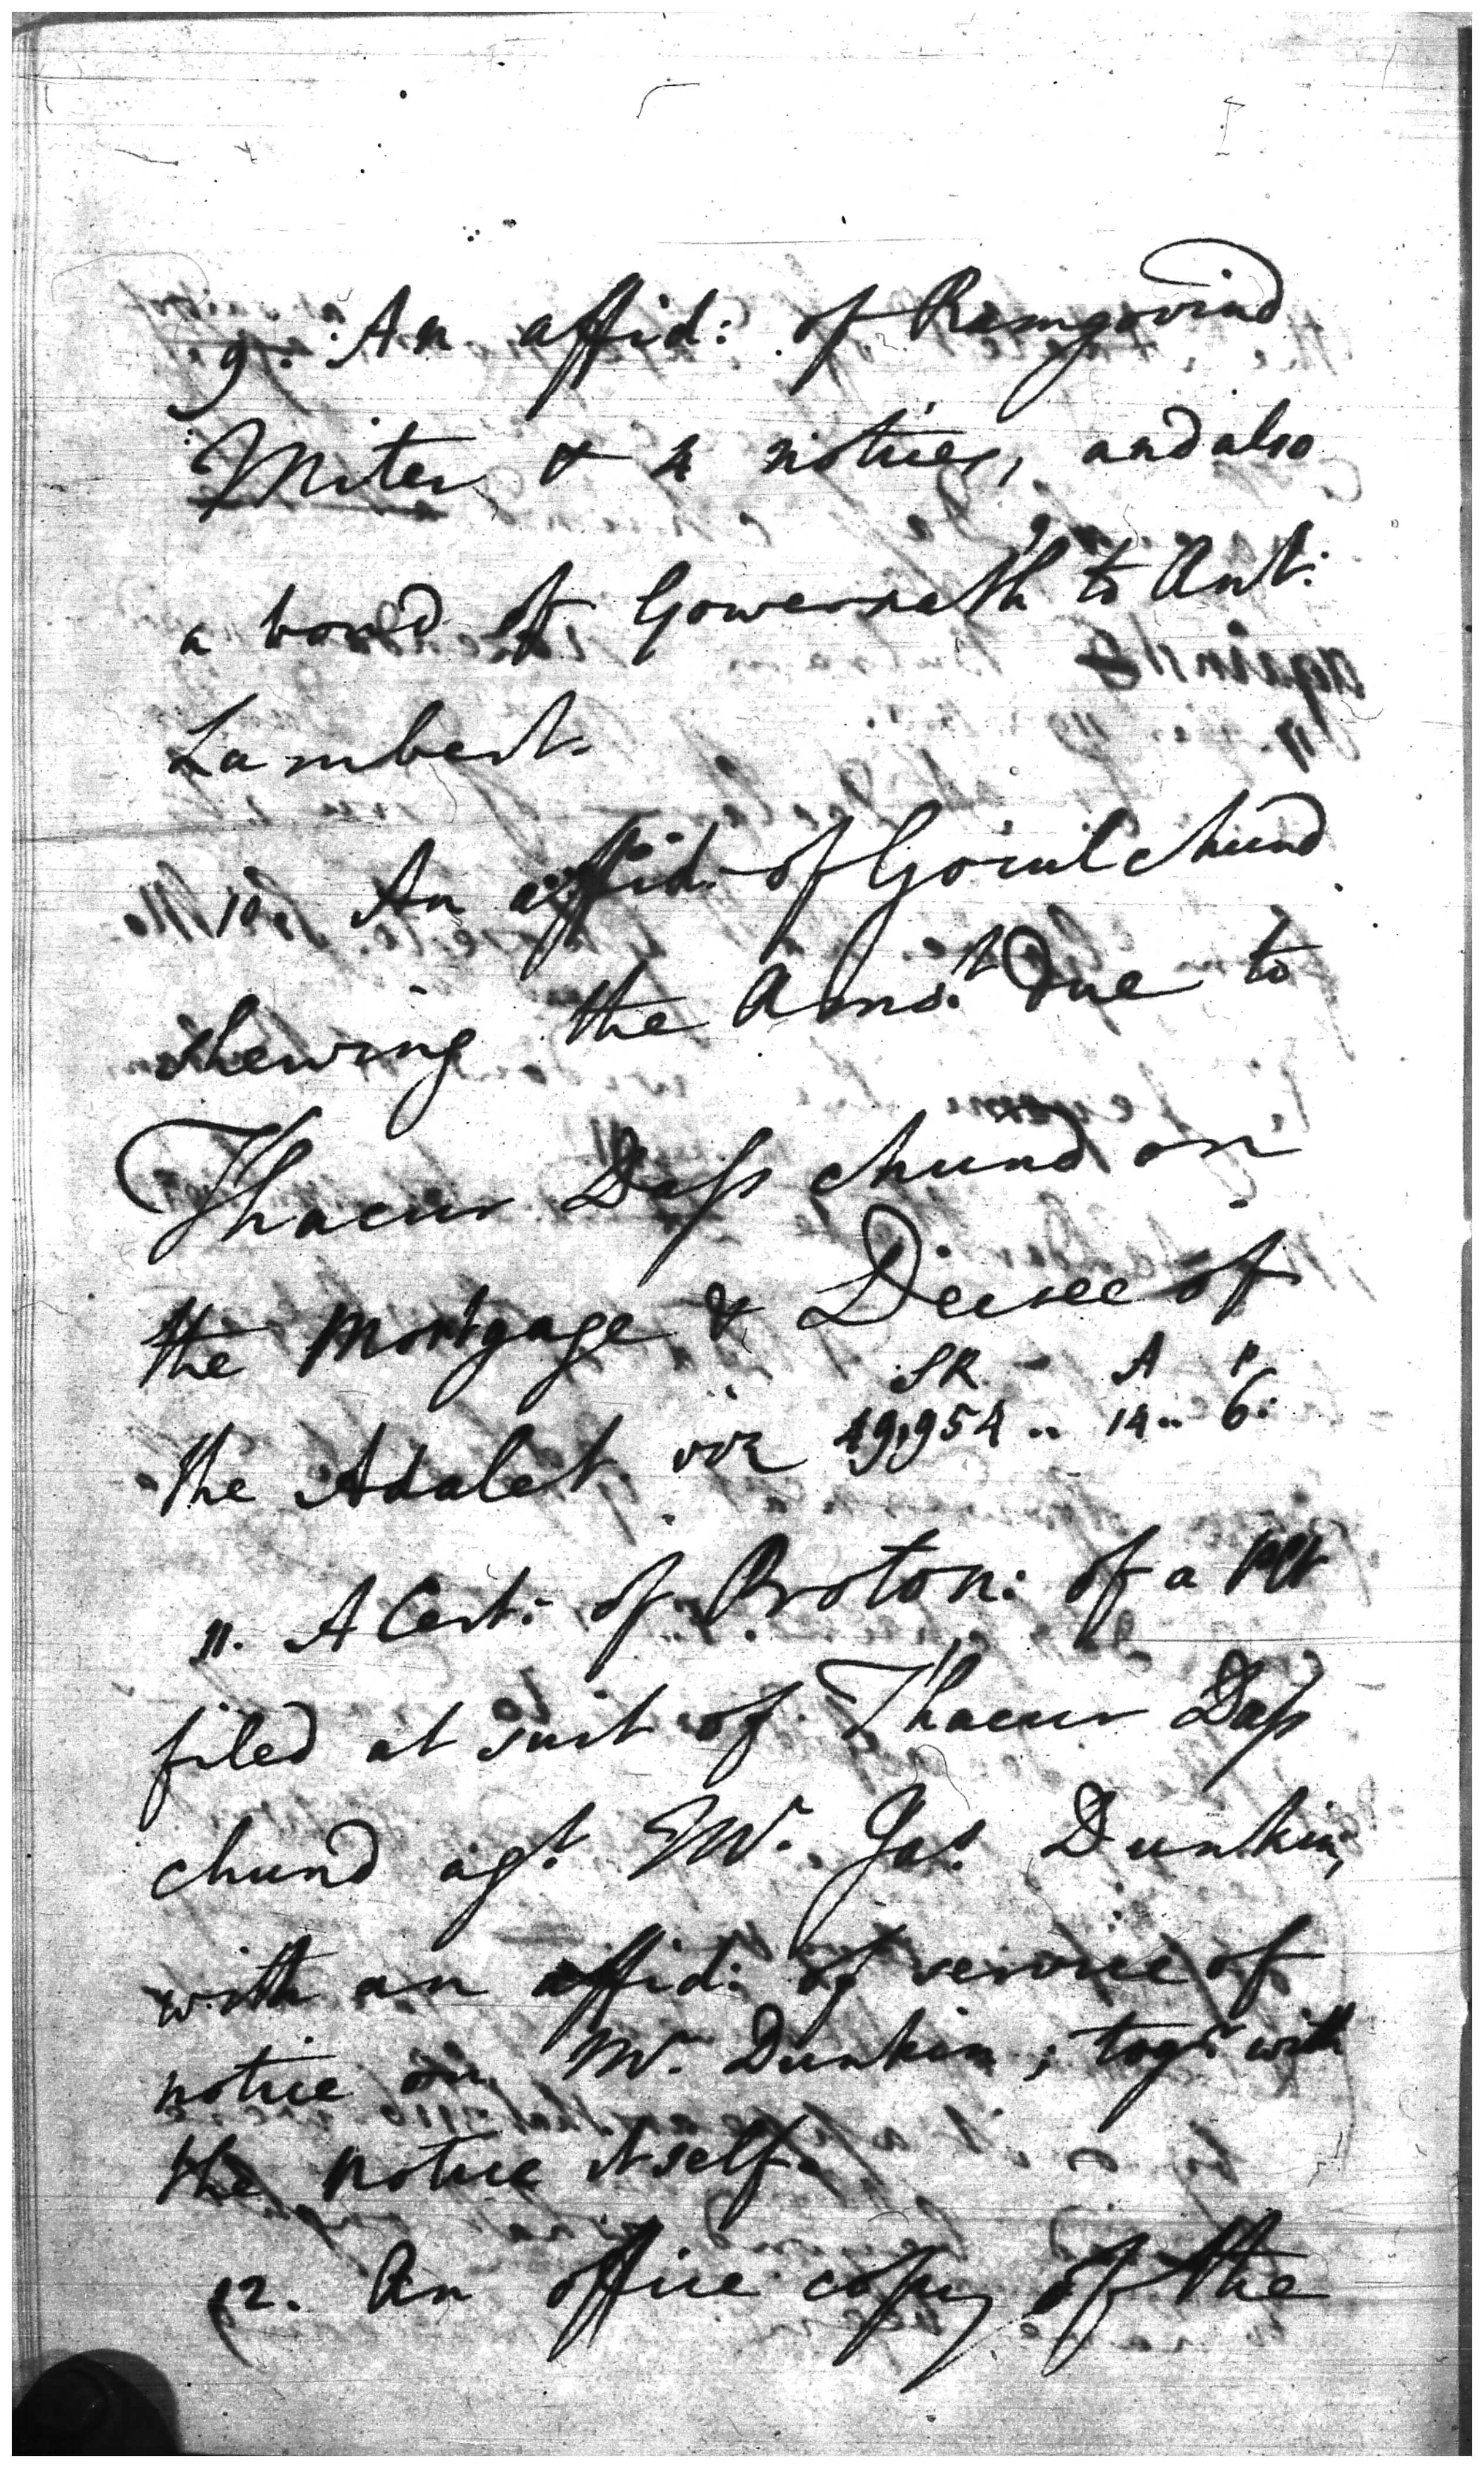 9. An affid: of Ramgovind
Miter & 4 notices, and also
a bond of Gowernath to Ant:
Lambert.
10. An affid: of Gocul chund
shewing the Amot. due to
Thacur Dass chund on
the mortgage & Decree of
SR A P
the Adalet viz 49,954.. 14.. 6.
11. A Cert: of Proton: of a
filed at suit of Thacur Dass
chund agt. Mr. Jas. Dunkin,
with an affid: of service of
notice on Mr. Dunkin; togr. with
the notice itself.
12. An office copy of the